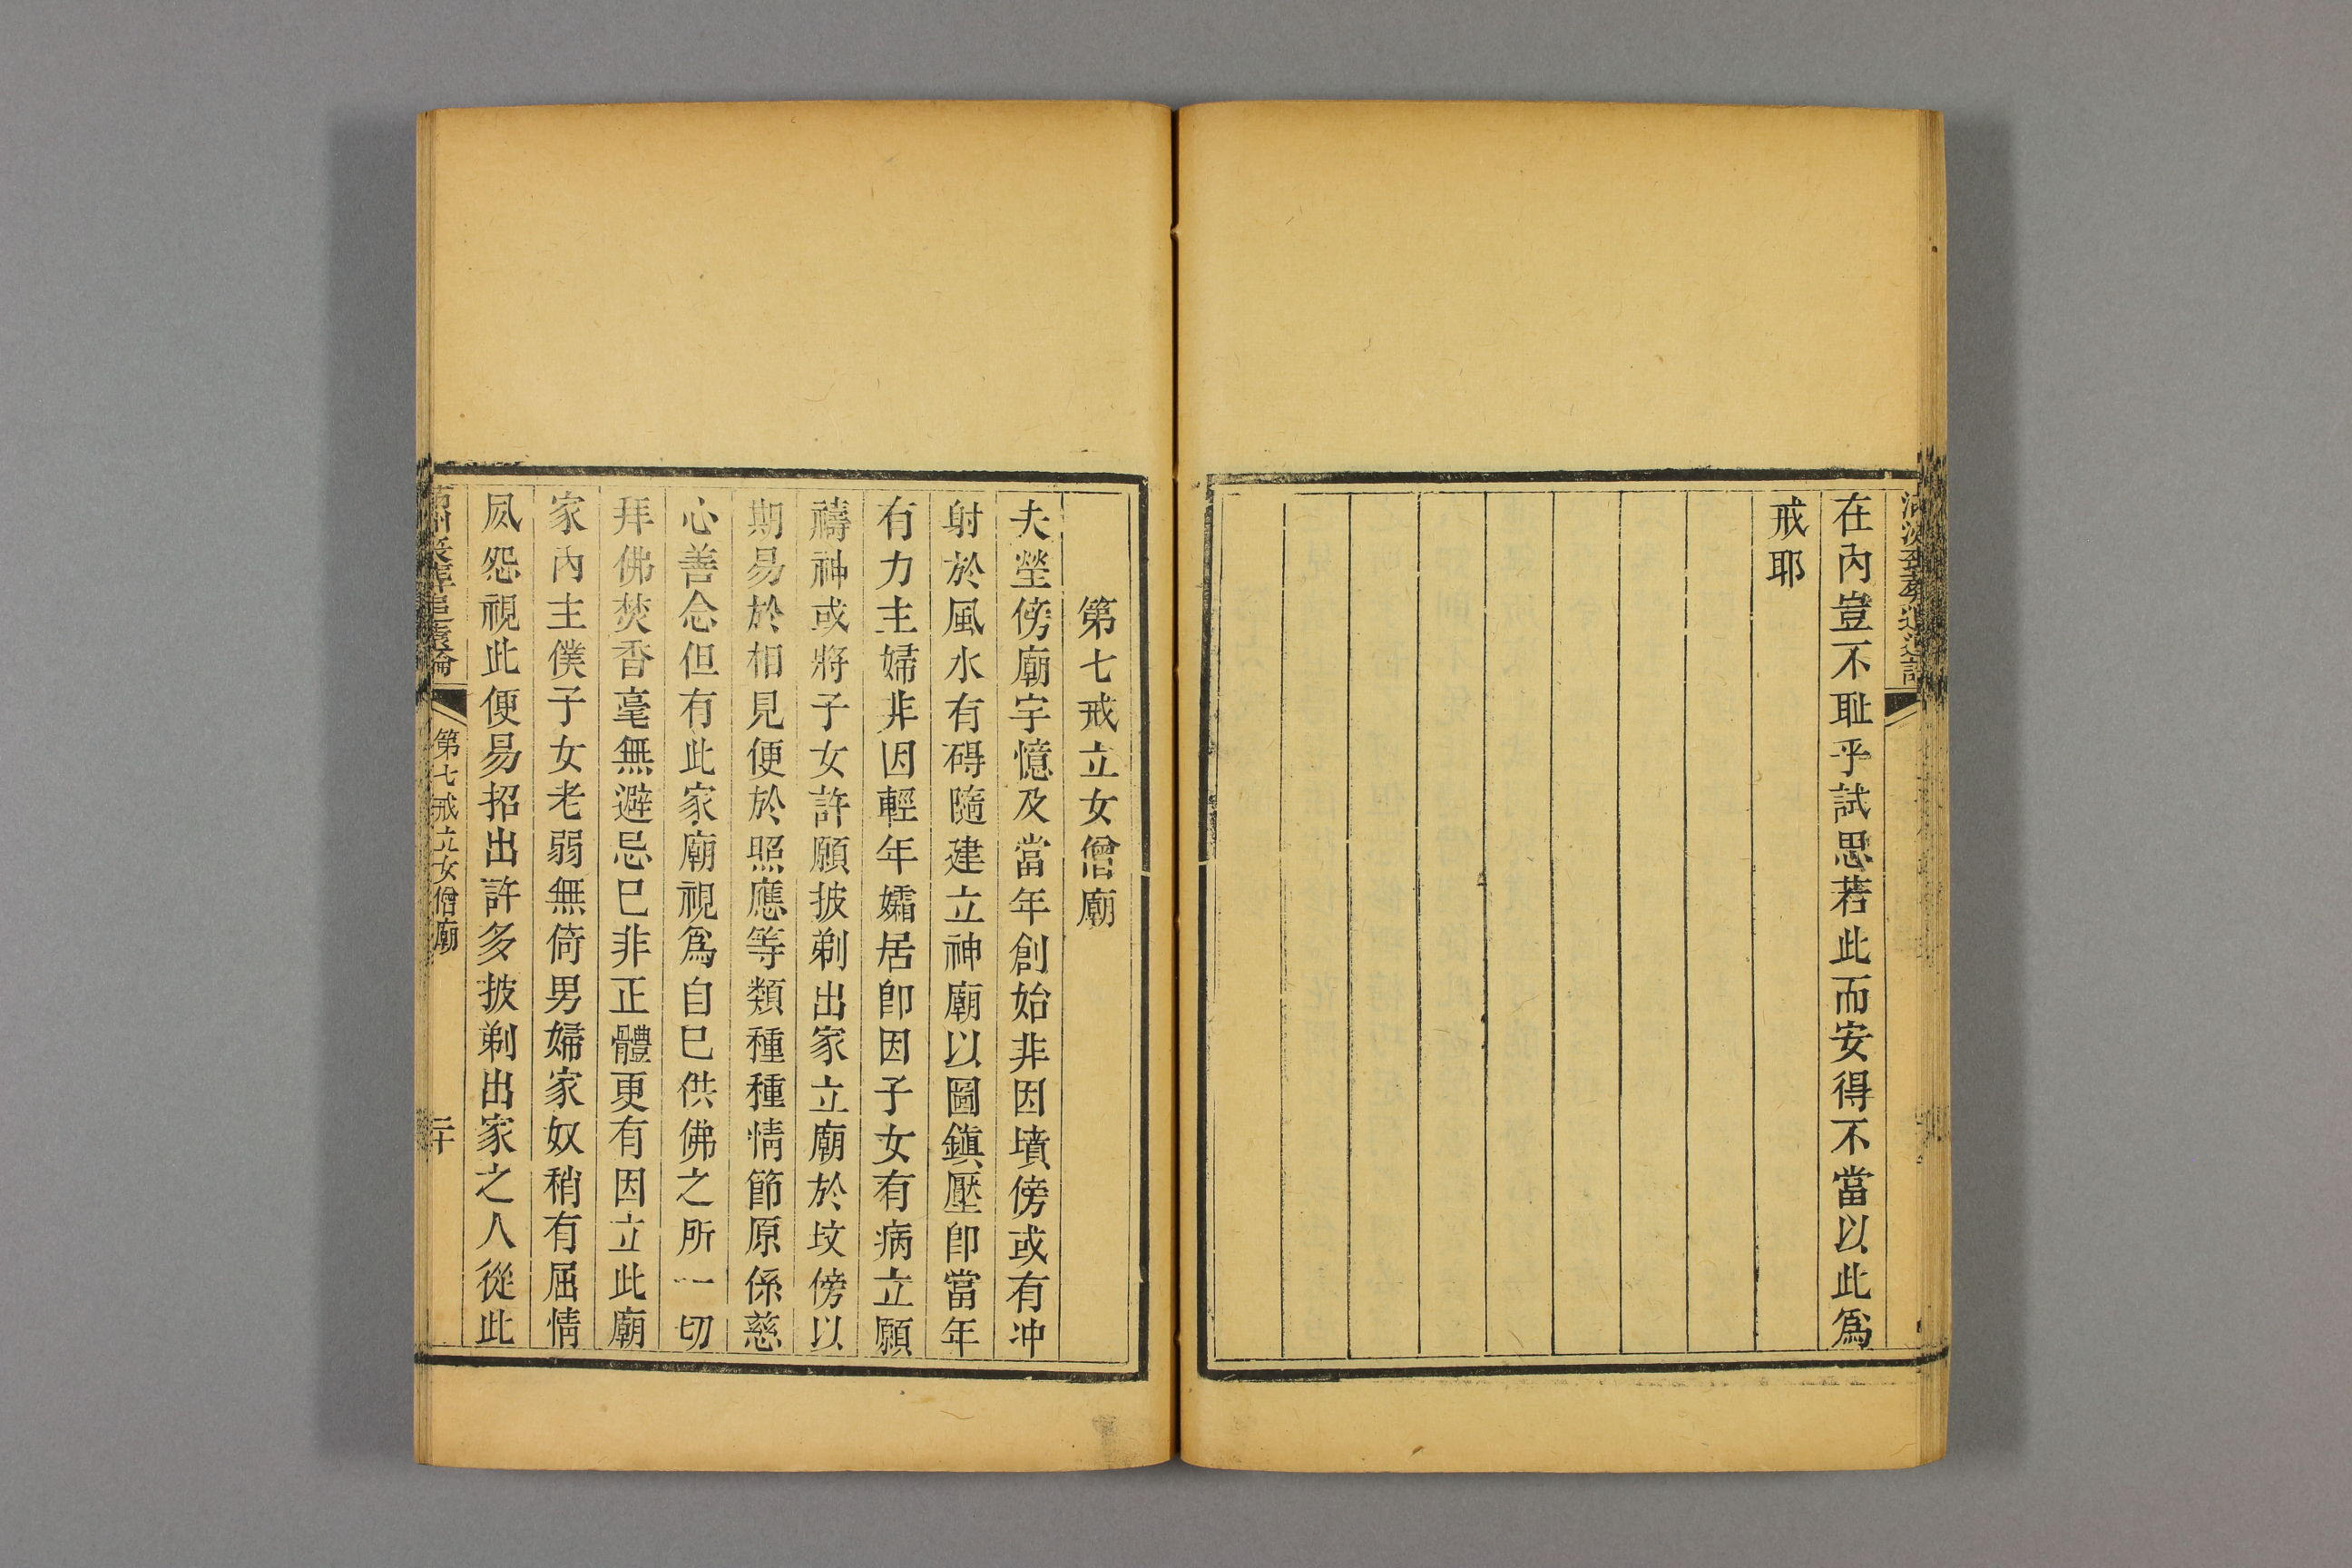 在內豈不耻乎試思若此而安得不當以此爲
戒耶
第七戒立女僧廟
夫塋傍廟宇憶及當年創始非因墳傍或有冲
射於風水有碍隨建立神廟以圖鎮壓卽當年
有力主婦非因輕年孀居卽因子女有病立願
禱神或將子女許願披剃出家立廟於坟傍以
期易於相見便於照應等類種種情節原係慈
心善念但有此家廟視爲自已供佛之所一切
拜佛焚香毫無避忌已非正體更有因立此廟
家內主僕子女老弱無倚男婦家奴稍有屈情
夙怨視此便易招出許多披剃出家之人從此
第七戒立女僧廟
二十